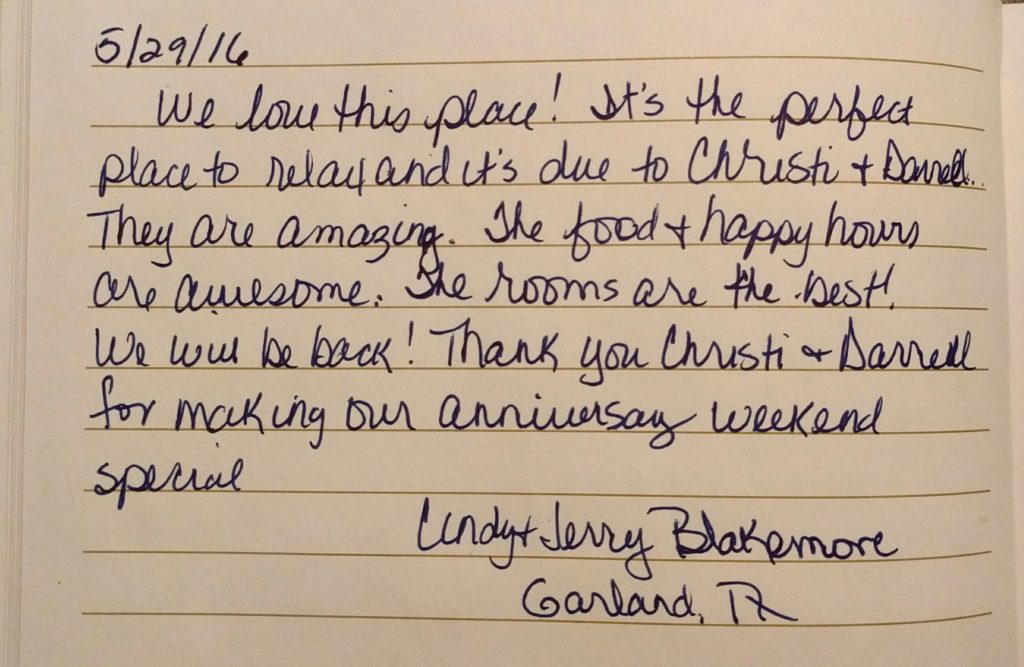 5/29/16
We love this place! It's the perfect
place to relax and it's due to Christi + Darrell.
They are amazing. The food + happy hours
are awesome. The rooms are the best!
We will be back! Thank you Christi + Darrell
for making our anniversay weekend
special
Cindy + Jerry Blakemore
Garland, TX